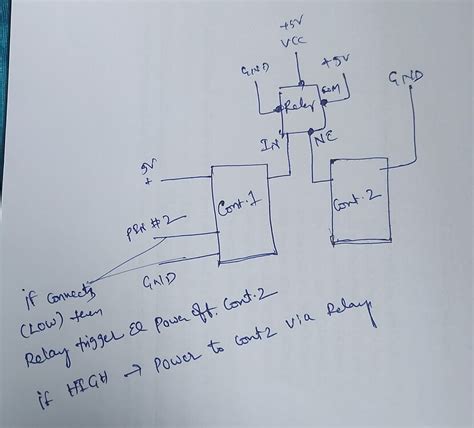 +5V
VCC
GND
+5V
GND
Relay
COM
IN
NE
5V
+
Cont.1
Cont.2
PIN #2
GND
if connects
(LOW) then
Relay trigger & Power off. Cont.2
if HIGH → Power to Cont2 via Relay